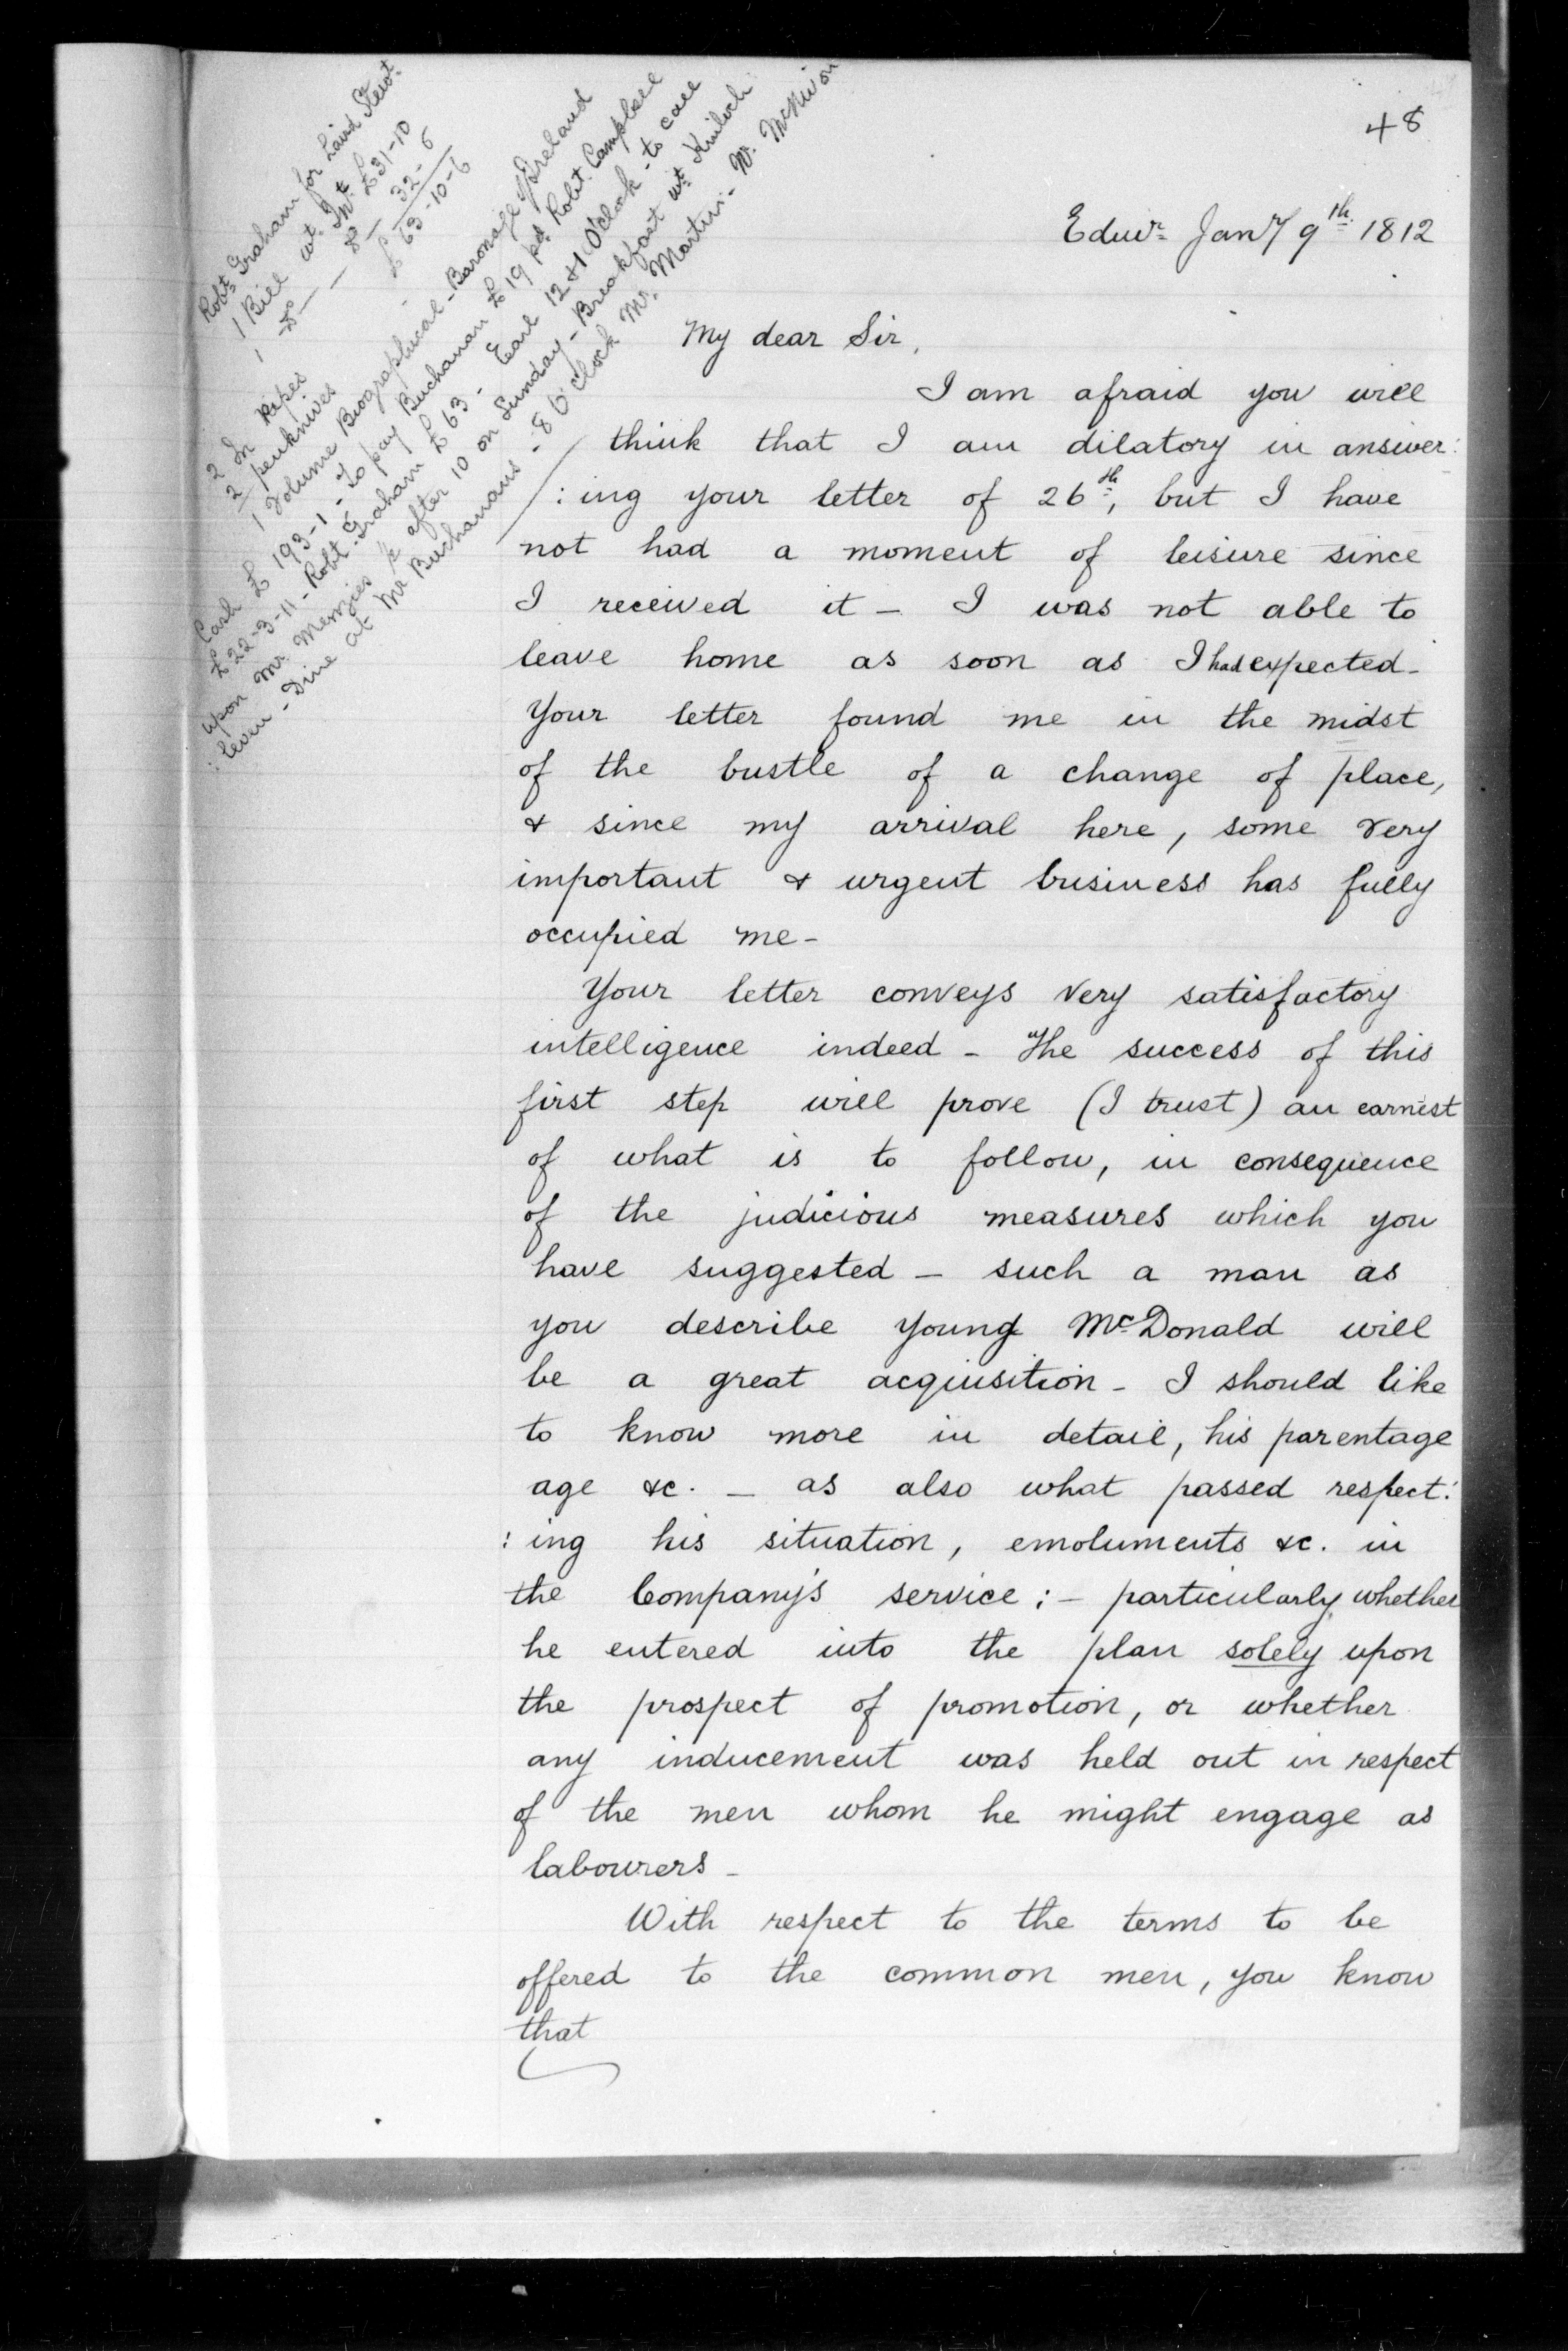 48
Edinr Jany 9th 1812
Robt Graham for Laird Stewt
1 Bill wt Int £31-10
1 Do — — 8 — 32-6
£63-10-6
2 In Pipes
2 penknives
1 Volume Biographical - Baronage of Ireland
Cash £193-1 - To pay Buchanan £19 pd Robt Campbell
£22-3-11 - Robt Graham £63 - Earl 12 & 1 O'clock - to call
upon Mr Menzies & after 10 on Sunday - Breakfast wt Kinloch
: leven - Dine at Mr Buchanans - 8 O'clock Mr Martin - W. McNivon
My dear Sir,
I am afraid you will
think that I am dilatory in answer:
:ing your letter of 26th, but I have
not had a moment of leisure since
I received it - I was not able to
leave home as soon as I had expected -
Your letter found me in the midst
of the bustle of a change of place,
& since my arrival here, some very
important & urgent business has fully
occupied me -
Your letter conveys very satisfactory
intelligence indeed - The success of this
first step will prove (I trust) an earnest
of what is to follow, in consequence
of the judicious measures which you
have suggested - such a man as
you describe young McDonald will
be a great acquisition - I should like
to know more in detail, his parentage
age &c. - as also what passed respect:
:ing his situation, emoluments &c. in
the Company's service ; - particularly whether
he entered into the plan solely upon
the prospect of promotion, or whether
any inducement was held out in respect
of the men whom he might engage as
labourers -
With respect to the terms to be
offered to the common men, you know
that